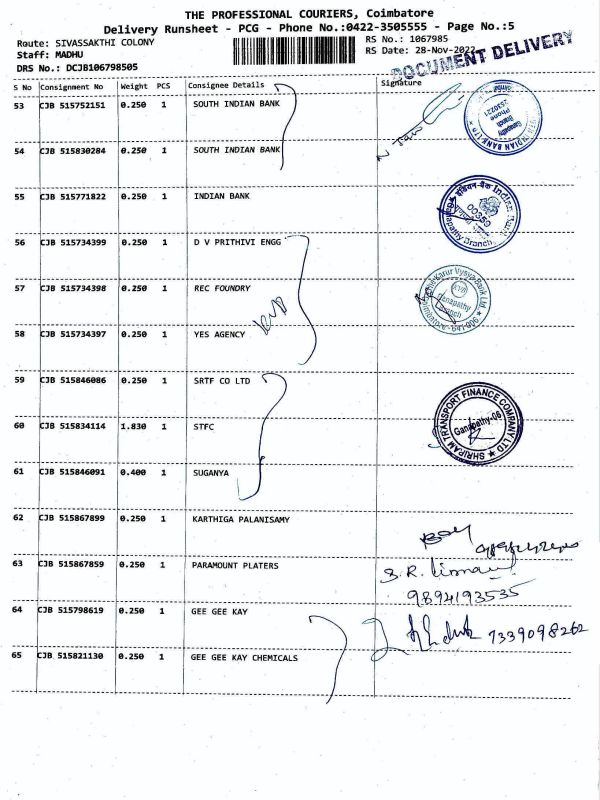 THE PROFESSIONAL COURIERS, Coimbatore
Delivery Runsheet - PCG - Phone No.:0422-3505555 - Page No.:5
Route: SIVASSAKTHI COLONY RS No.: 1067985
Staff: MADHU RS Date: 28-Nov-2022
DRS No.: DCJB106798505 DOCUMENT DELIVERY
S No Consignment No Weight PCS Consignee Details Signature
53 CJB 515752151 0.250 1 SOUTH INDIAN BANK
54 CJB 515830284 0.250 1 SOUTH INDIAN BANK
55 CJB 515771822 0.250 1 INDIAN BANK
56 CJB 515734399 0.250 1 D V PRITHIVI ENGG
57 CJB 515734398 0.250 1 REC FOUNDRY
58 CJB 515734397 0.250 1 YES AGENCY
59 CJB 515846086 0.250 1 SRTF CO LTD
60 CJB 515834114 1.830 1 STFC
SHRIRAM TRANSPORT FINANCE COMPANY LTD
Ganapathy-06
61 CJB 515846091 0.400 1 SUGANYA
62 CJB 515867899 0.250 1 KARTHIGA PALANISAMY
63 CJB 515867859 0.250 1 PARAMOUNT PLATERS
9894193535
64 CJB 515798619 0.250 1 GEE GEE KAY
7339098262
65 CJB 515821130 0.250 1 GEE GEE KAY CHEMICALS